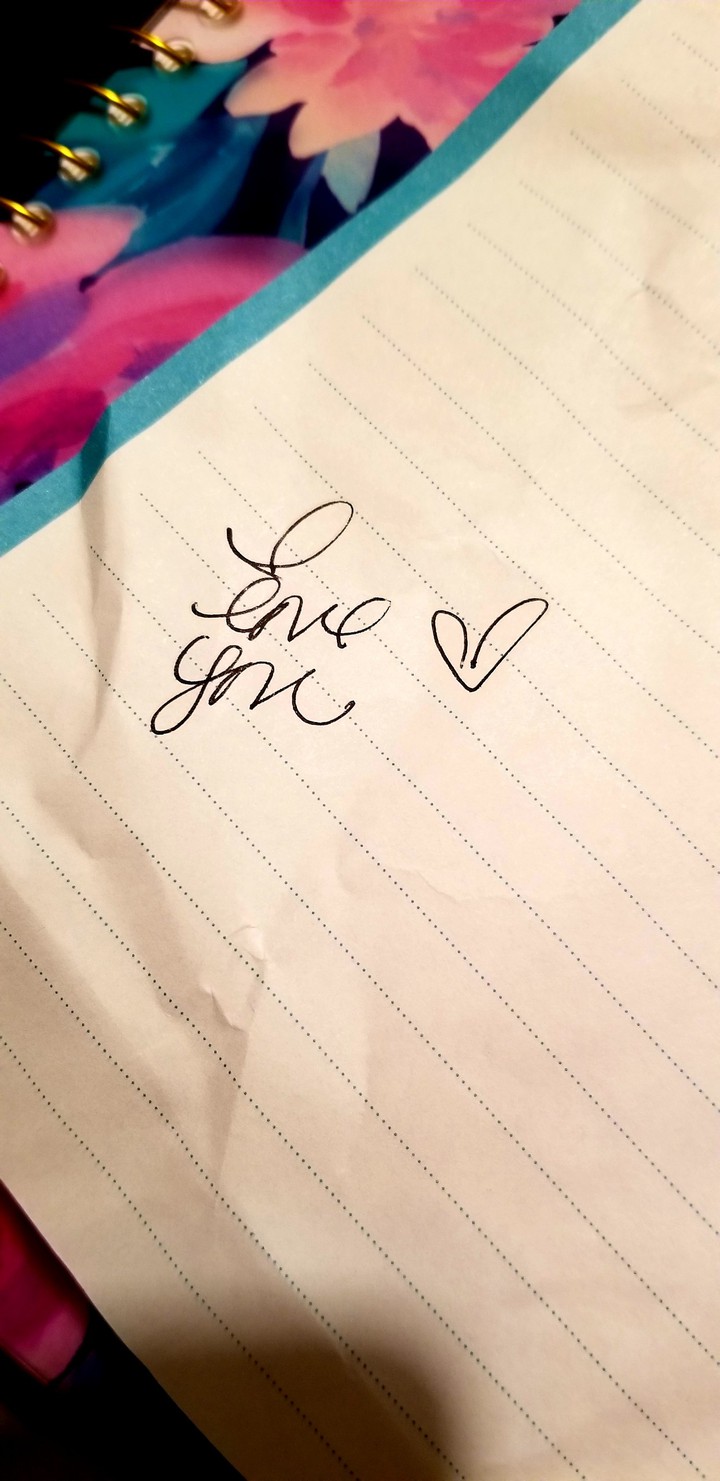 Love
you ♡